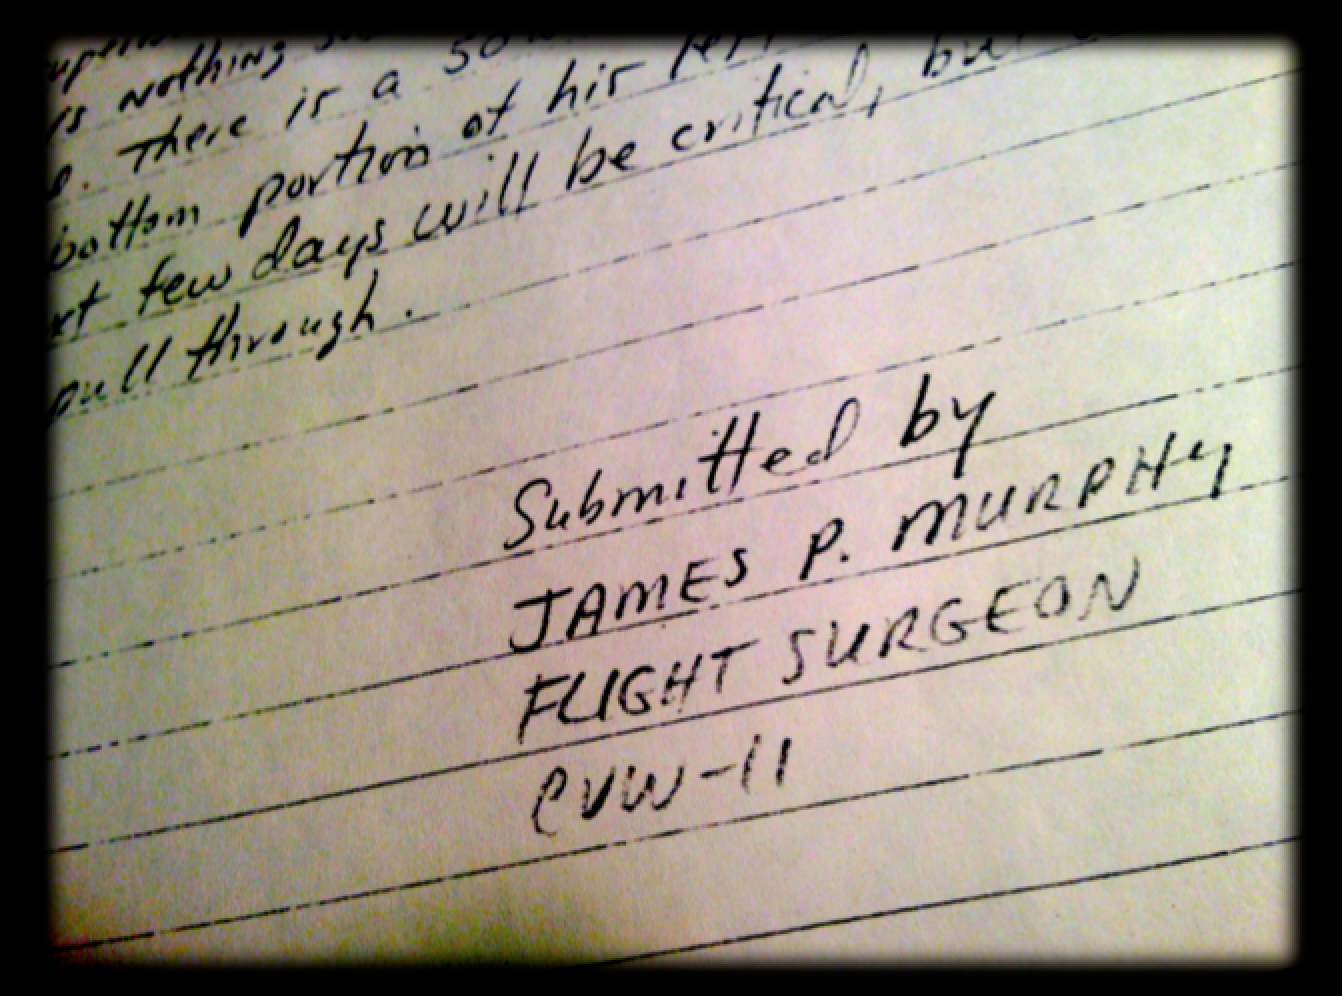 is nothing
. There is a
bottom portion of his
few days will be critical, but
pull through.
Submitted by
JAMES P. MURPHY
FLIGHT SURGEON
CVW-11